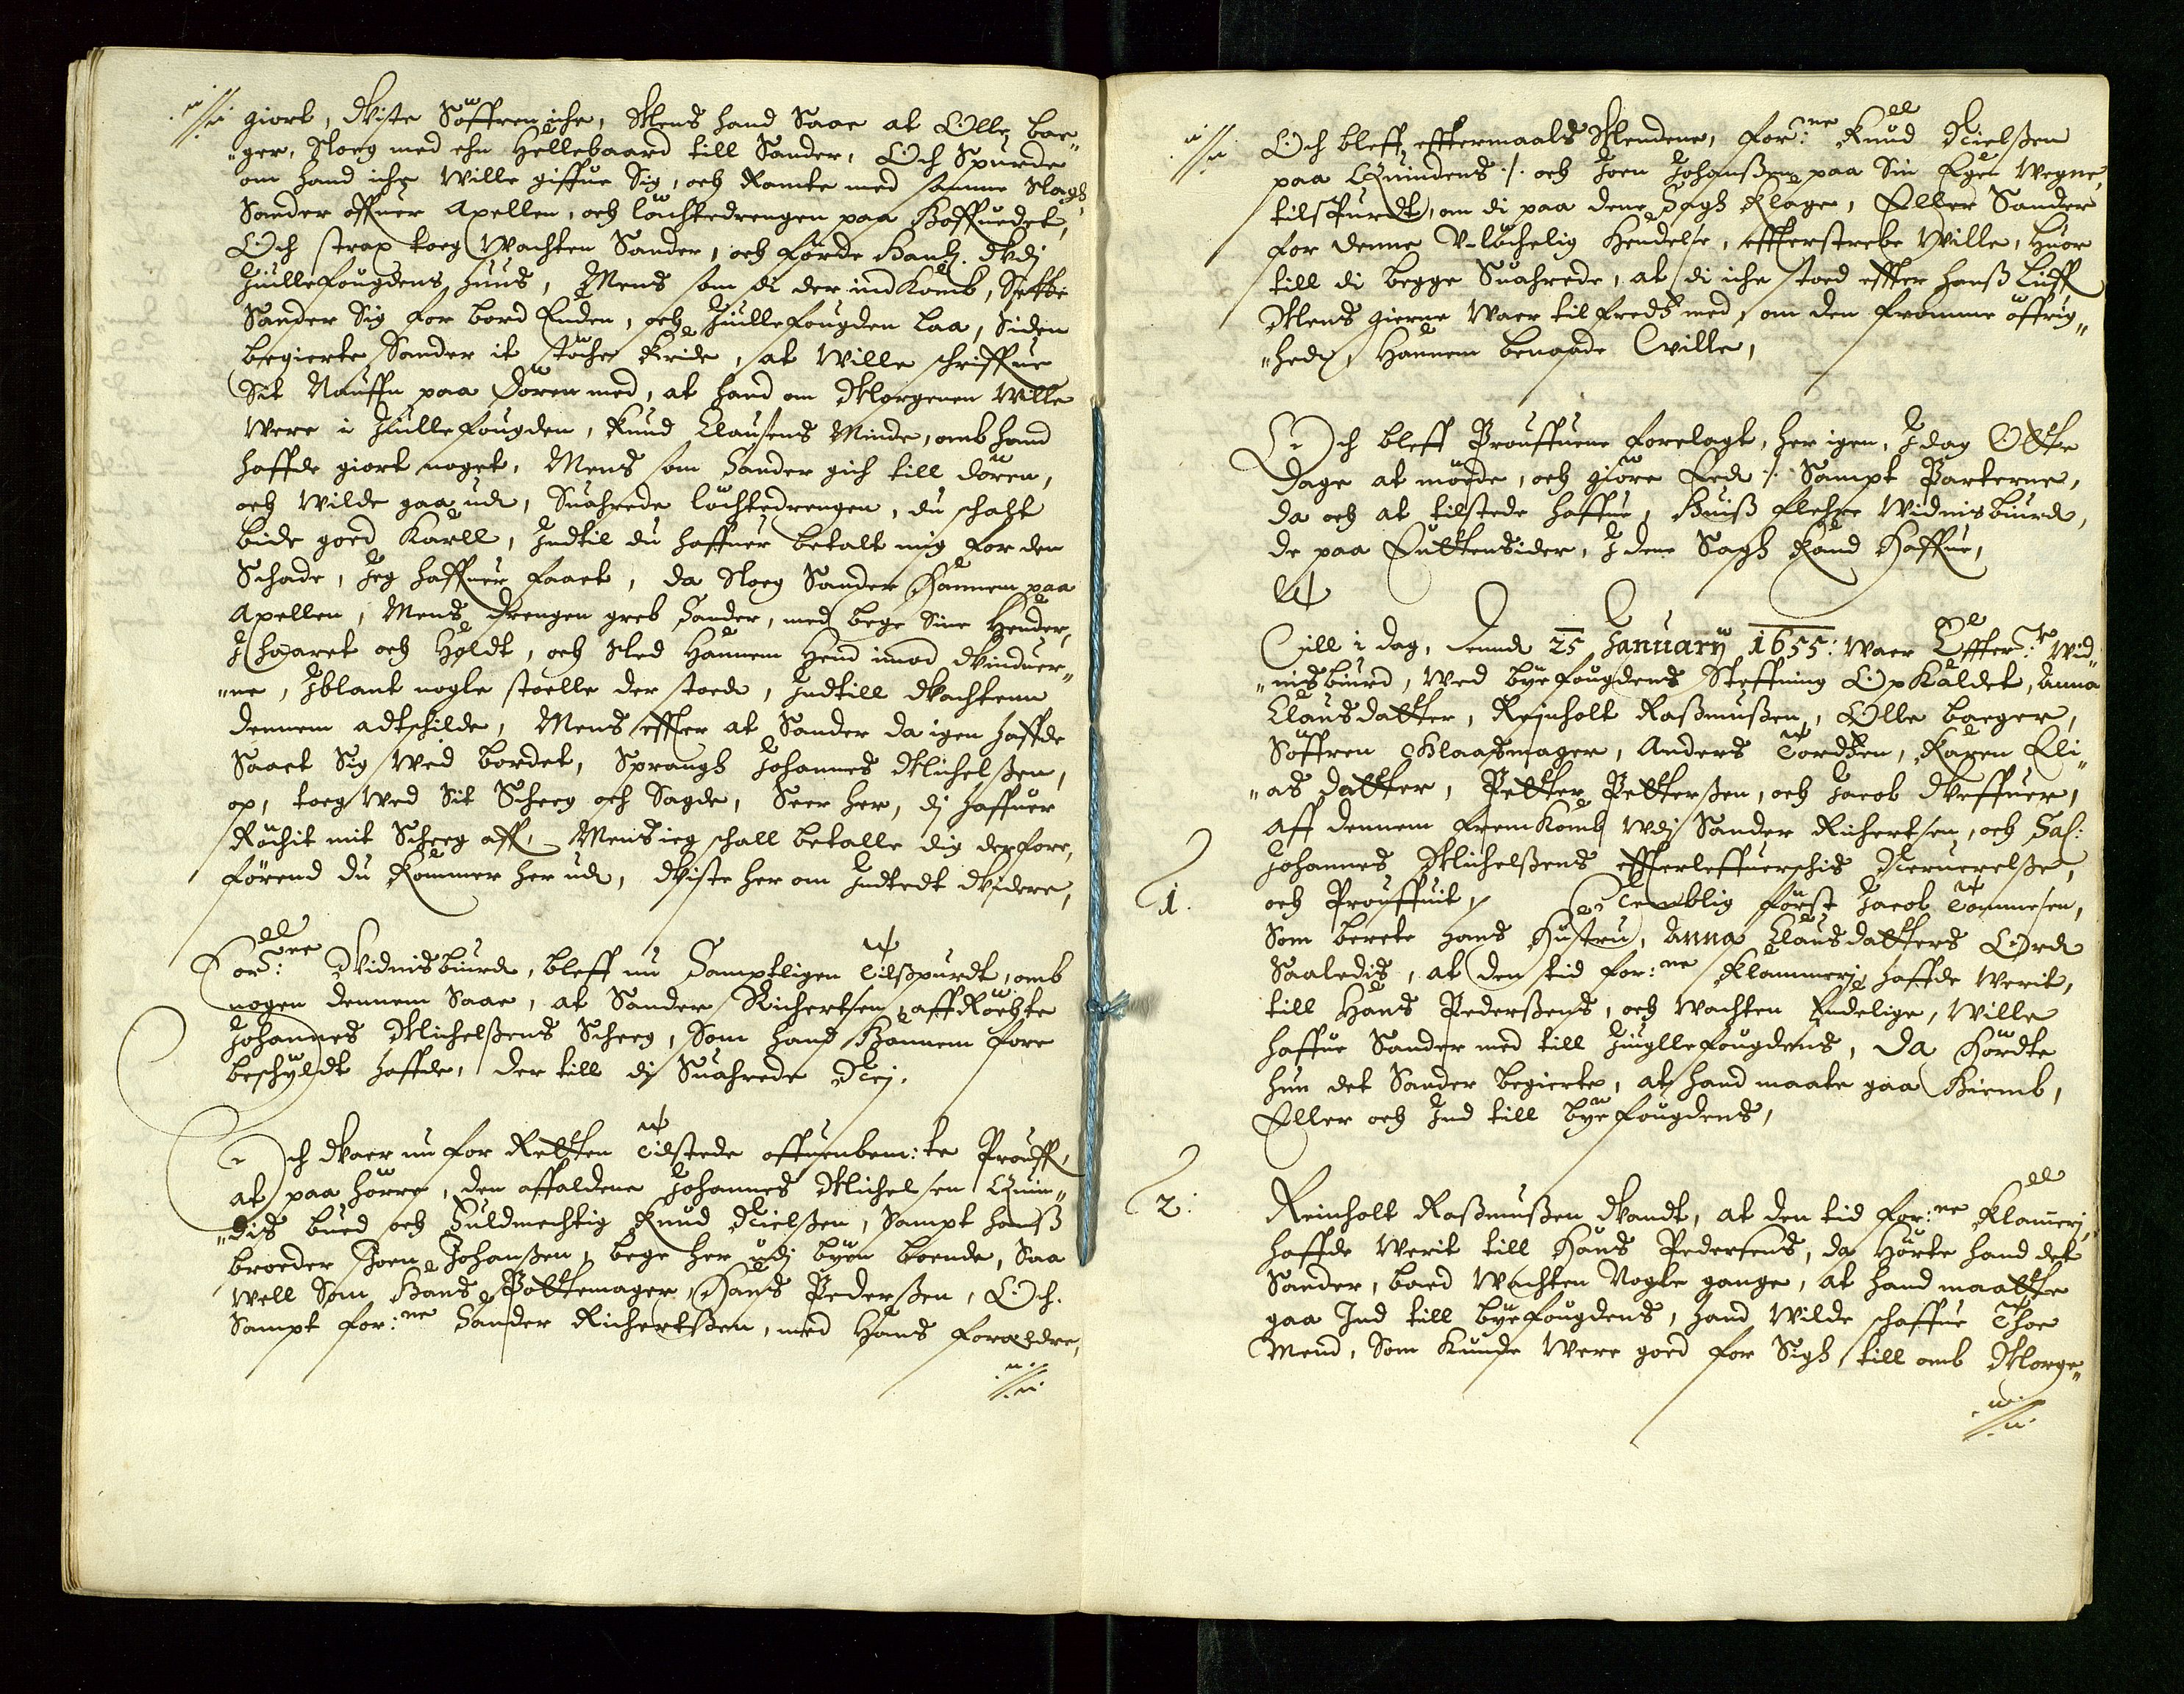 giort, Wiste Söffren iche, Mens hand Saae at Olle bae¬
¬ger, Sloeg med ehn Hellebaard till Sander, Och Spurde
om hand iche Wille giffue Sig, och Ramte med samme Slagh,
Sander offuer Axellen, och löchtedrengen paa Hoffuedet,
Och strax toeg Wachten Sander, och förde Hans Udj
Juullefougdens huus, Mens som di der ind Komb, Sette
Sander Sig for bord Enden, och Juullefougden laa, Siden
begierte Sander it støche Kride, at Wille schriffue
Sit Nauffn paa Dören med, at hand om Morgenen Wille
Were i Juullefougden, Knud Clausens Minde, omb hand
haffde giort noget, Mens som Sander gich till dören,
och Wilde gaa ud, Suahrede löchtedrengen, du schalt
bide goed Karll, Indtil du haffuer betalt mig for den
Schade, Jeg haffuer faaet, da Sloeg Sander Hannem paa
Axellen, Mens Drengen greb Sander, med bege Sine Hender,
I haaret och Holdt, och Sled Hannem Hend imod Winduer¬
¬ne, Iblant nogle stoelle der stoede, Indtill Wachtenn
dennem adtschilde, Mens effter at Sander da igen haffde
Saaet Sig Wed bordet, Sprangh Johannes Michelßen,
op, toeg Wed Sit Scheeg och Sagde, Seer her, dj haffuer
Röchit mit Scheeg aff, Mens ieg schall betalle dig derfore,
förend du Kommer her ud, Wiste her om Indtedt Widere,
For:ne Widnisbiurd, bleff nu Samptligen tilspurdt, omb
nogen dennem Saae, at Sander Richertsen affRöchte
Johannes Michelßens Scheeg, Som hand Hannem fore
beschyldt haffde, der till dj Suahrede Nej.
Och Waer nu for Retten tilstede offuenbem:te Prouff,
at paa hörre, den affaldene Johannes Michelsen Quin¬
¬dis bued och Fuldmechtig Knud Nielßen, Sampt hanß
broeder Joen Johanßen, bege her udj byen boende, Saa
Well Som Hans Pottemager, Hans Pederßen, Och.
Sampt for:ne Sander Richertßen, med Hans foraldre,
Och bleff efftermaals Mendene, for:ne Knud Nielßen
paa Quindens ./. och Joen Johanßen paa Sin Egen Wegne,
tilspurdt, om di paa dene Sagh Klager, Eller Sander
for denne V-löchelig Hendelse, effterstrebe Wille, Huor
till di begge Suahrede, at di iche stoed effter hanß Liff
Mens gierne Waer tilfreds med, om den fromme öffrig¬
¬hed, Hannem benaade Wille,
Och bleff Prouffuene forelagt, her igen, I dag Otte
dage at möede, och giöre Eed ./. Sampt Parterne,
da och at tilstede haffue, Huiß flehre Widnisbiurd,
de paa Enttensider, I dene Sagh Kand Haffue,
Till i dag, Dend 25 January 1655: Waer Effter:te Wid¬
¬nisbiurd, Wed byefougdens Steffning Op Kaldet, Anna
Clausdatter, Reinholt Raßmußen, Olle baeger,
Söffren Glaasmager, Anders Tordßen, Karen Eli¬
¬as datter, Petter Petterßen, och Jacob Weffuer,
Aff dennem fremKomb Udj Sander Richertsen, och Sal:
Johannes Michelßens effterleffuerschis Neruerelße,
och Prouffuit,
1. Nemblig först Jacob Tommesen,
Som berete hans Hustru, Anna Clausdatters Ord
Saaledis, at den tid for:ne Klammerj haffde Werit,
till Hans Pederßens, och Wachten Endelige, Wille
haffue Sander med till Juullefougdens, da Hördte
hun det Sander begierte, at hand maate gaa Hiemb,
Eller och Ind till byefougdens,
2. Reinholt Raßmußen Wandt, at den tid for:ne Klamerj,
haffde Werit till Hans Pedersens, da Hörte hand det
Sander, baed Wachten Nogle gange, at hand maatte
gaa Ind till byefougdens, hand Wilde schaffue Thoe
Mend, Som Kunde Were goed for Sigh, till omb Morge¬